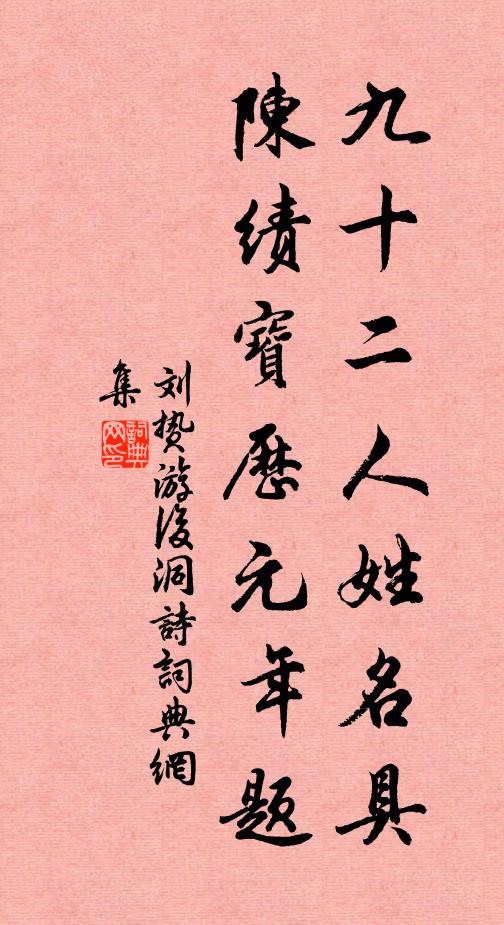 九十二人姓名具
陳績寶歷元年題
刘挚游後洞詩詞典網
集
詞典网印